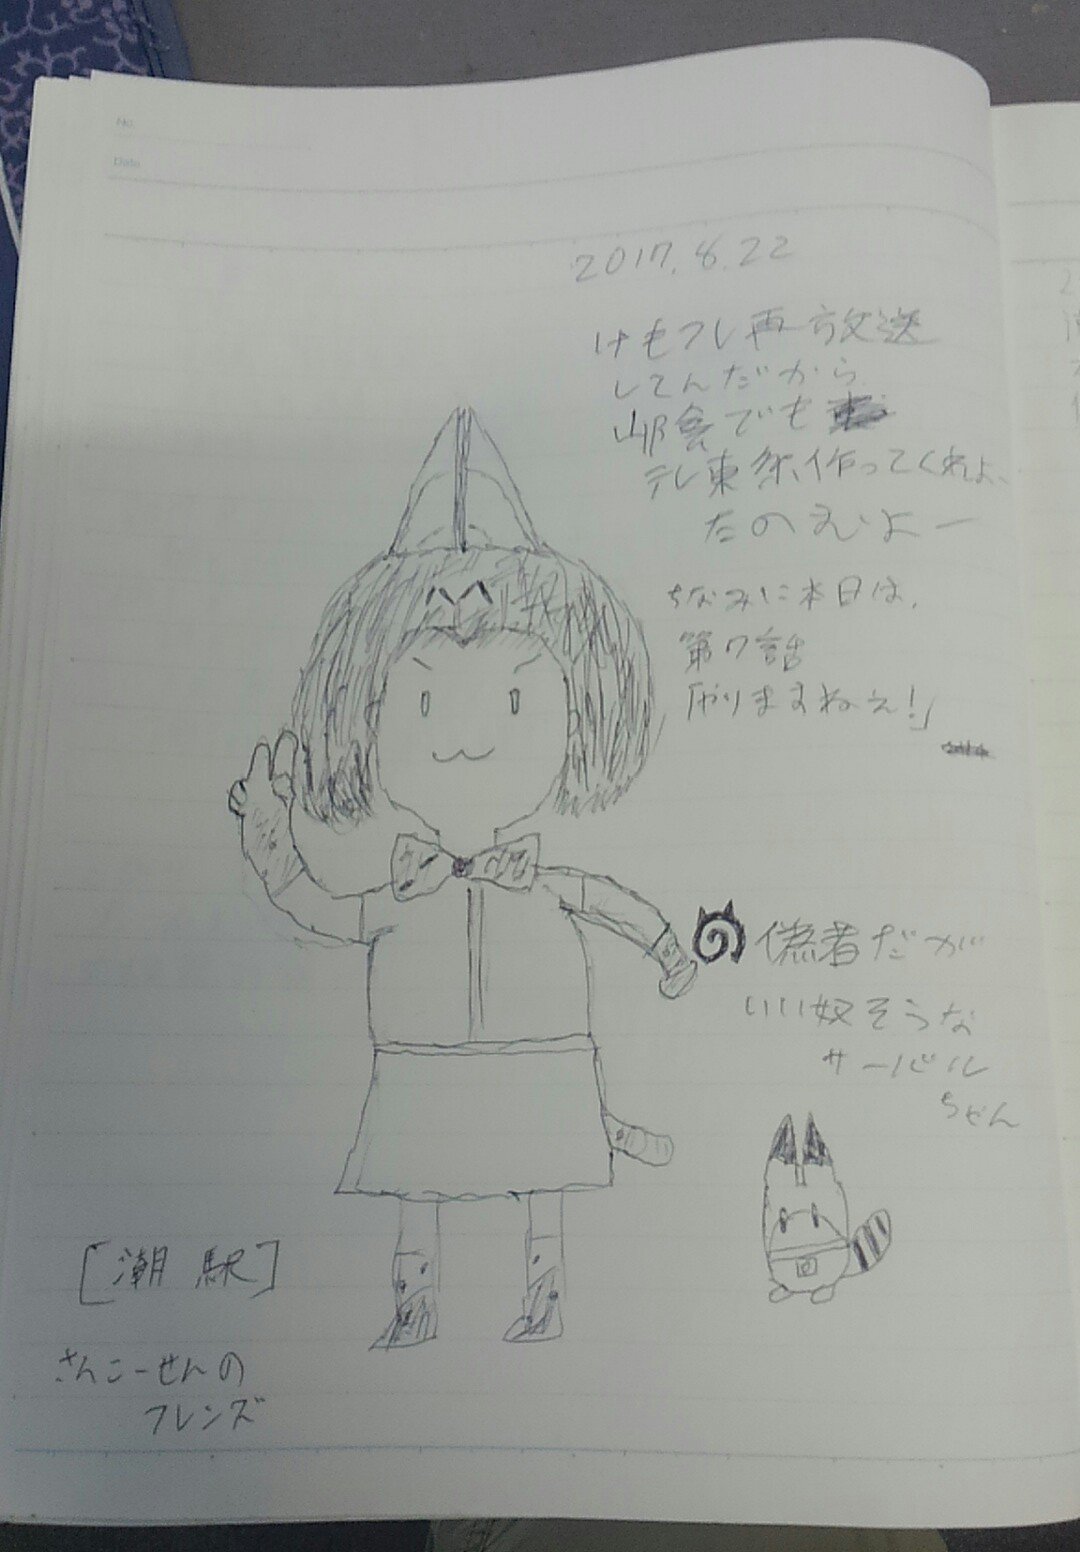 No.
Date
2017.8.22
けもフレ再放送
してんだから
山陰でも
テレ東系作ってくれよ、
たのむよー
ちなみに本日は、
第7話
「やりますねぇ!」
偽者だが
いい奴そうな
サーバル
ちゃん
回
[潮駅]
さんこーせんの
フレンズ